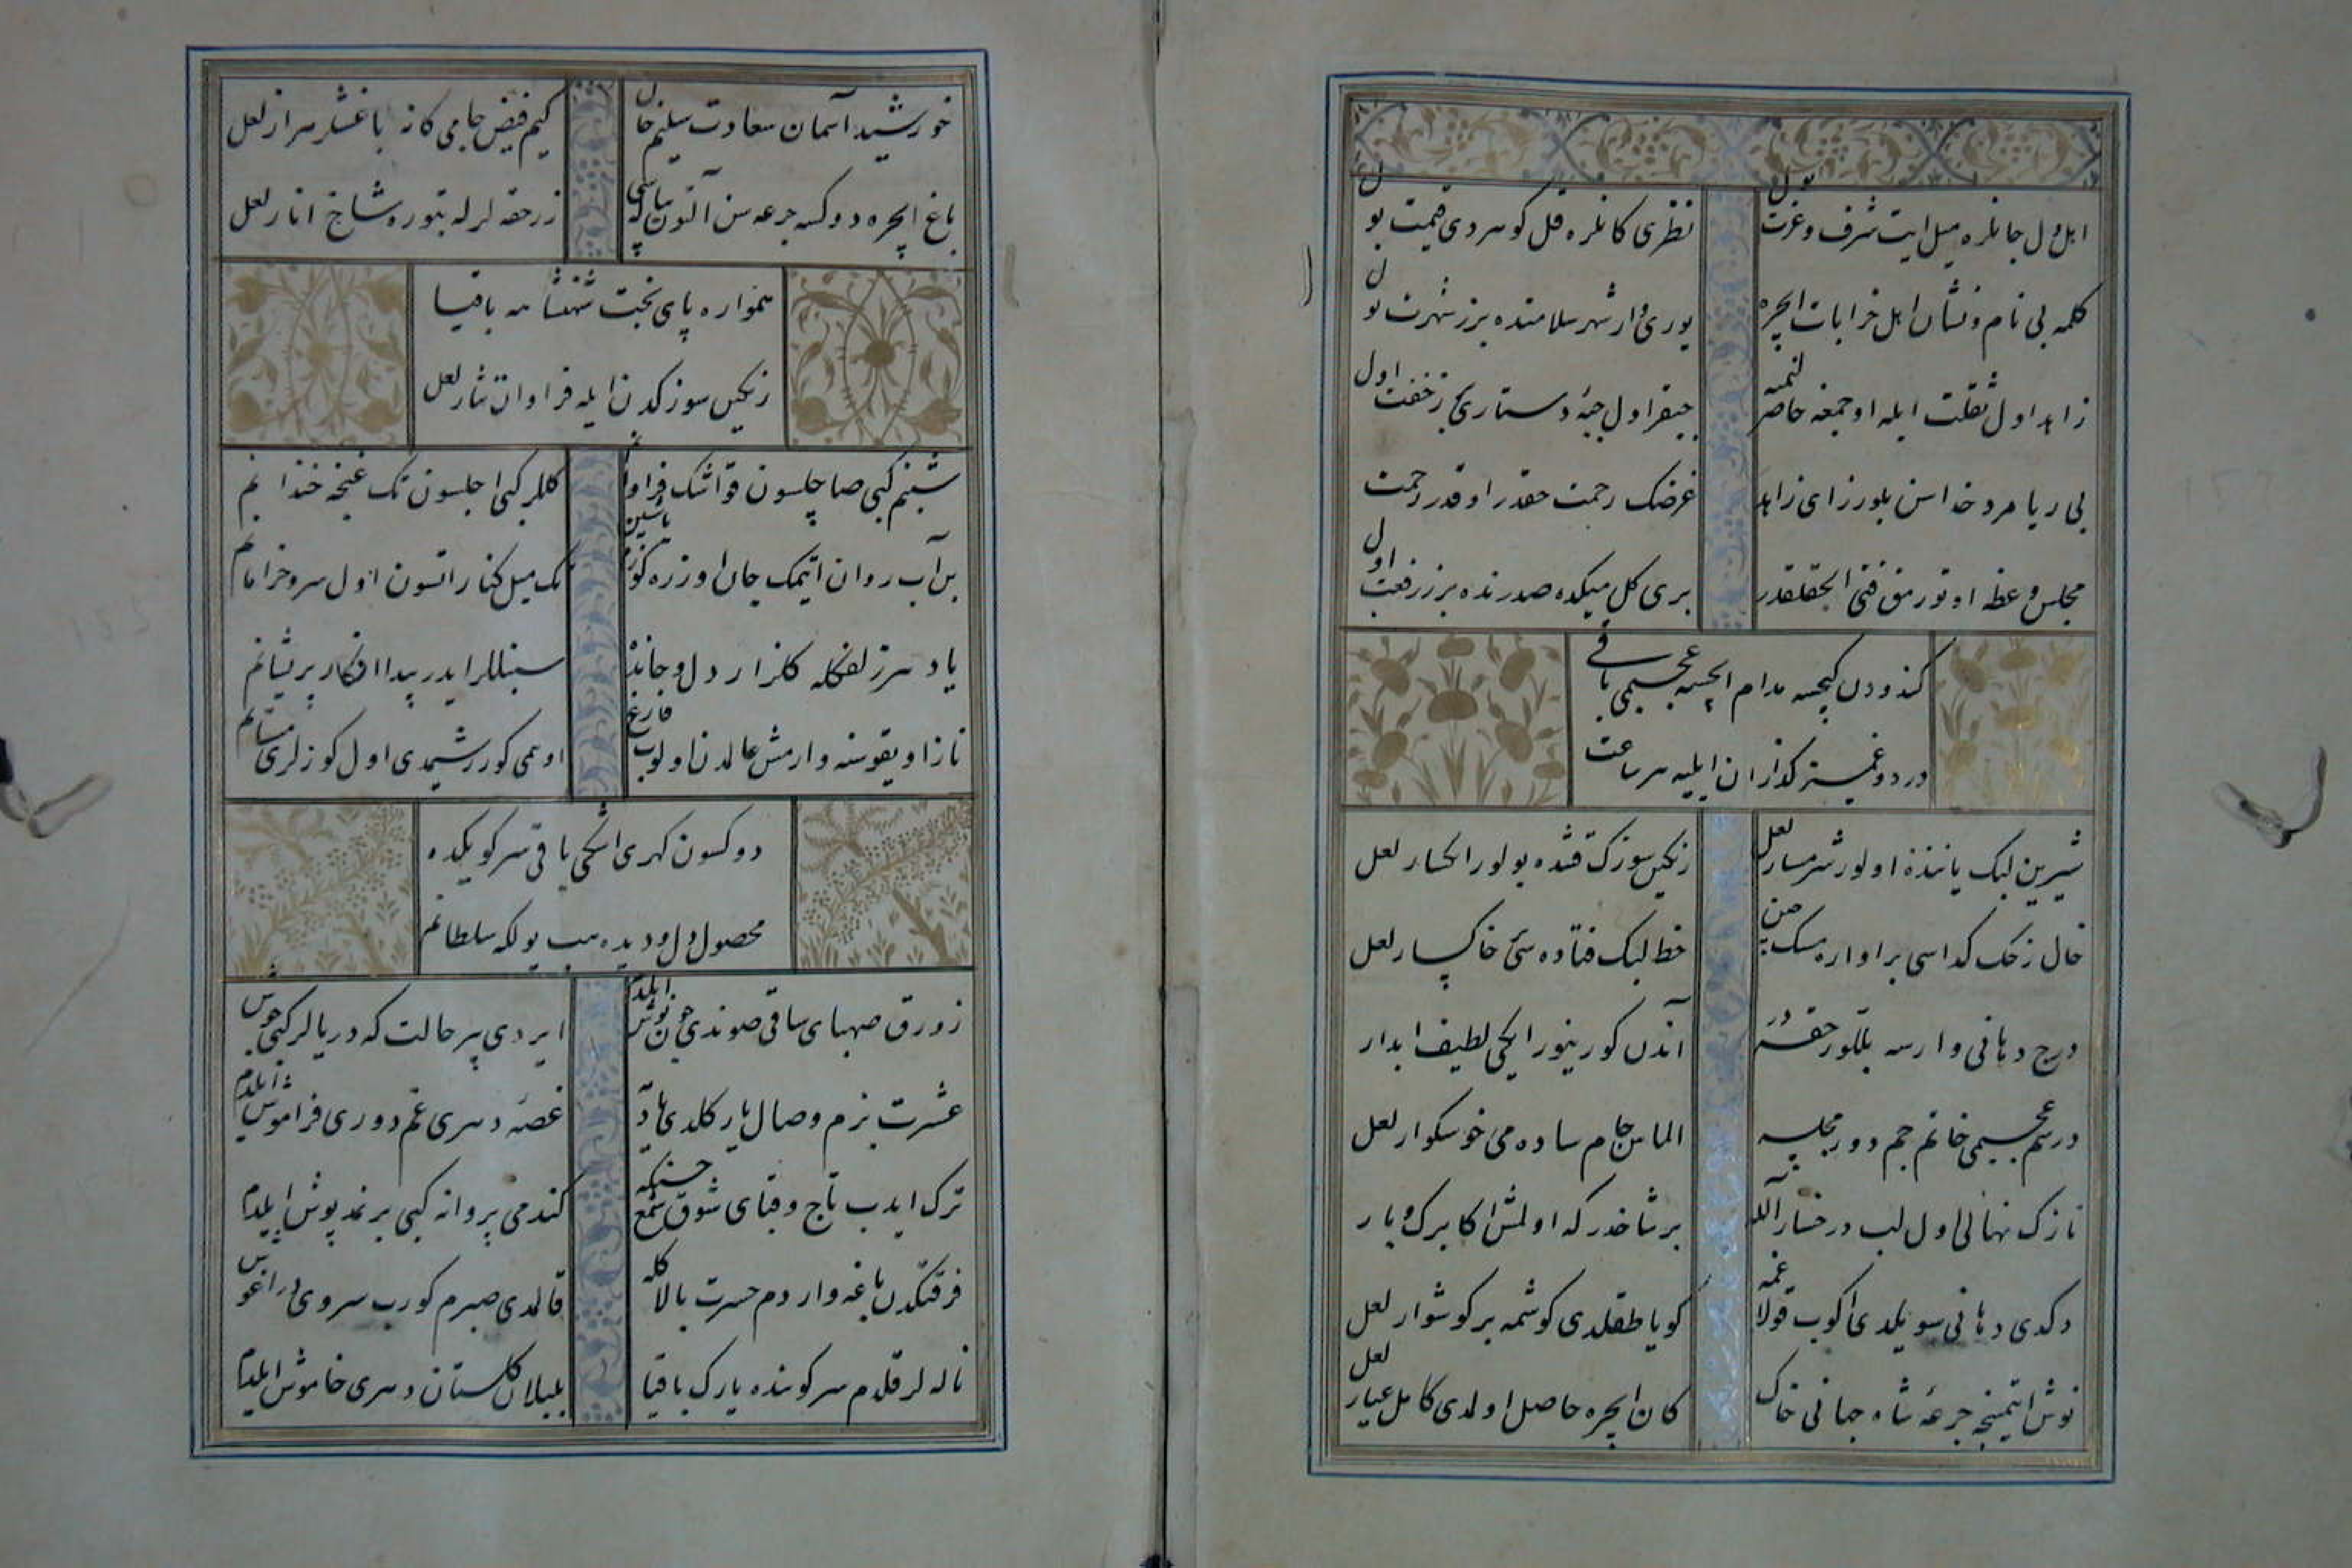 اهل دل جانلره میل ایت شرف و عزت بول
نظری کانلره قل کوهر دی قیمت بول
کلمه بی نام و نشان اهل خرابات ایچره
یوری وار شهر سلامتده برر شهرت بول
زاهد اول ثقلت ایله اوجمغه حاضر لنمه
چیقر اول جبه و دستاری بر خفت اول
بی ریا مرد خدا سن بلورز ای زاهد
غرضک رحمت حقدر او قدر زحمت اول
مجلس وعظه اوتورمق فتی الحق
بری کل میکده صدرنده برر رفعت اول
کندودن کیچسه مدام ایچسه عجبمی باقی
درد و غمسز کذران ایلیه هر ساعت
شیرین لبک یاننده اولور شرمسار لعل
رنکین سوزک قتنده بولور انکسار لعل
خال زخک کداسی بر اواره مسک چین
خط لبک فتاده سی خاکسار لعل
درج دهانی وارسه بللور حقه در
آندن کورینور ایکی لطیف ابدار
درسم عجبمی خاتم جم دور مجلسه
الماس جام ساده می خوشکوار لعل
نازک نهالی اول لب و رخسار آلله
بر شاخدر که اولمش اکا برک و بار
دکدی دهانی سویلدی اکوب قولاغمه
کویا طقلدی کوشمه بر کوشوار لعل
نوش ایتمینجه جرعهٔ شاه جهانی خاک
کان ایچره حاصل اولدی کامل عیار لعل
خورشید آسمان سعادت سلیم خان
کیم فیض جامی کانه باغشلر هزار لعل
باغ ایچره دوکسه جرعه سن آلتون پیاله سی
زر حقه لرله بتوره شاخ انار لعل
همواره پای تخت شهنشاهه باقیا
رنکین سوزکدن ایله فراوان نثار لعل
شبنم کبی صاچلسون قو اشک فراوانم
کللر کبی اچلسون تک غنچه خندانم
بن آب روان ایتمک جان اوزره کوزم یاشین
تک میل کنار ایتسون اول سرو خرامانم
یاد سر زلفکله کلزار دل و جانده
سنبللر ایدر پیدا افکار پریشانم
ناز اویقوسنه وارمش عالمدن اولوب فارغ
اویمی کوررشیمدی اول کوزلری مستانم
دوکسون کهری اشکی باقی سر کویکده
محصول دل و دیده هب یولکه سلطانم
زورق صهبای ساقی صوندی چون نوش ایلدم
ایردی بر حالت که دریالر کبی جوش
عشرت بزم وصال یار کلدی یاده
غصهٔ دهری غم دوری فراموش ایلدم
ترک ایدب تاج و قبای شوق شمع حسنکه
کندمی پروانه کبی بر نمد پوش ایلدم
فرقتکدن باغه واردم حسرت بالاکله
قالمدی صبرم کورب سروی در اغوش
ناله لر قلدم سر کوینده یارک باقیا
بلبلان کلستان دهری خاموش ایلدم